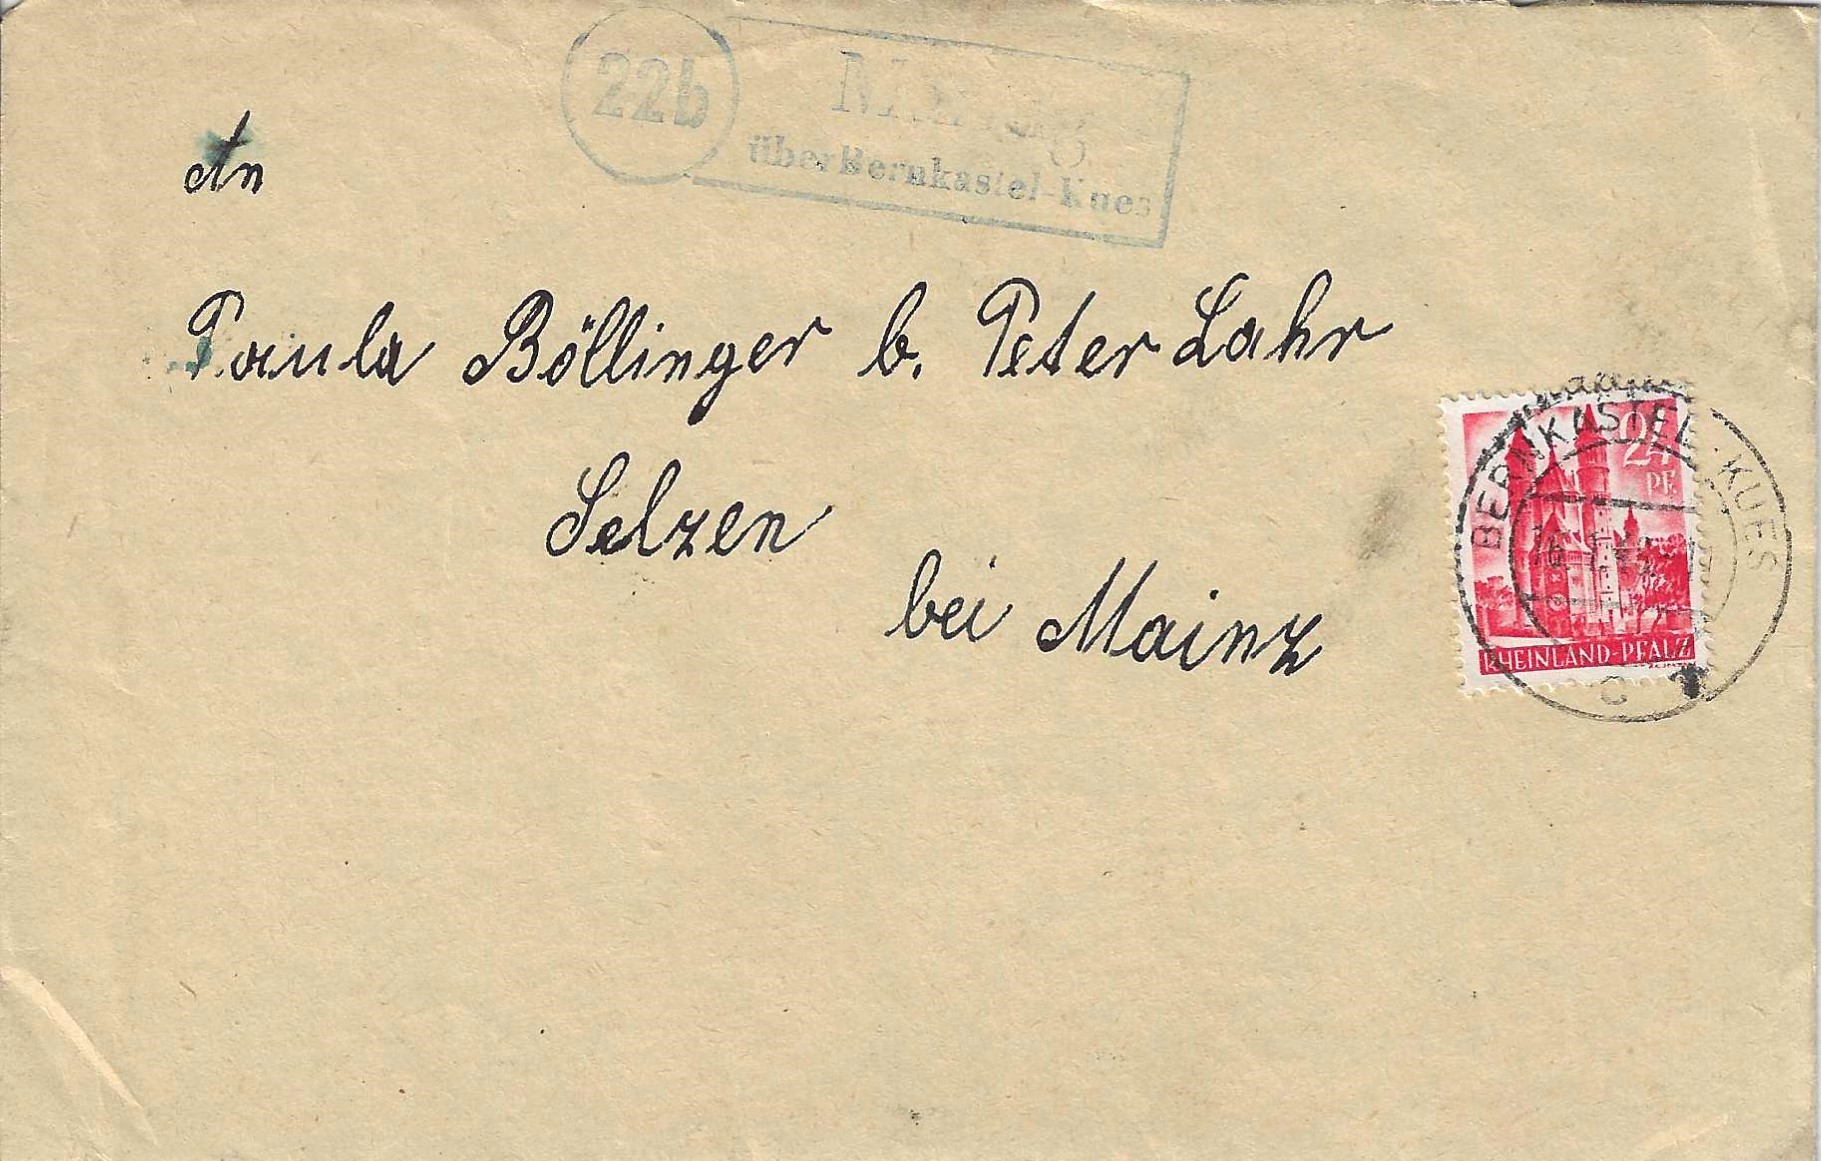 22b
über Bernkastel-Kues
An
Paula Böllinger b. Peter Lahr
Selzen
bei Mainz
24
PF.
RHEINLAND-PFALZ
BERNKASTEL-KUES
c